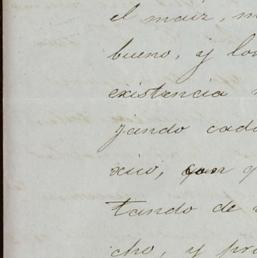 el maiz, m
bueno, y lo
existencia
jando cad
xico, con q
tando de
cho, y pr